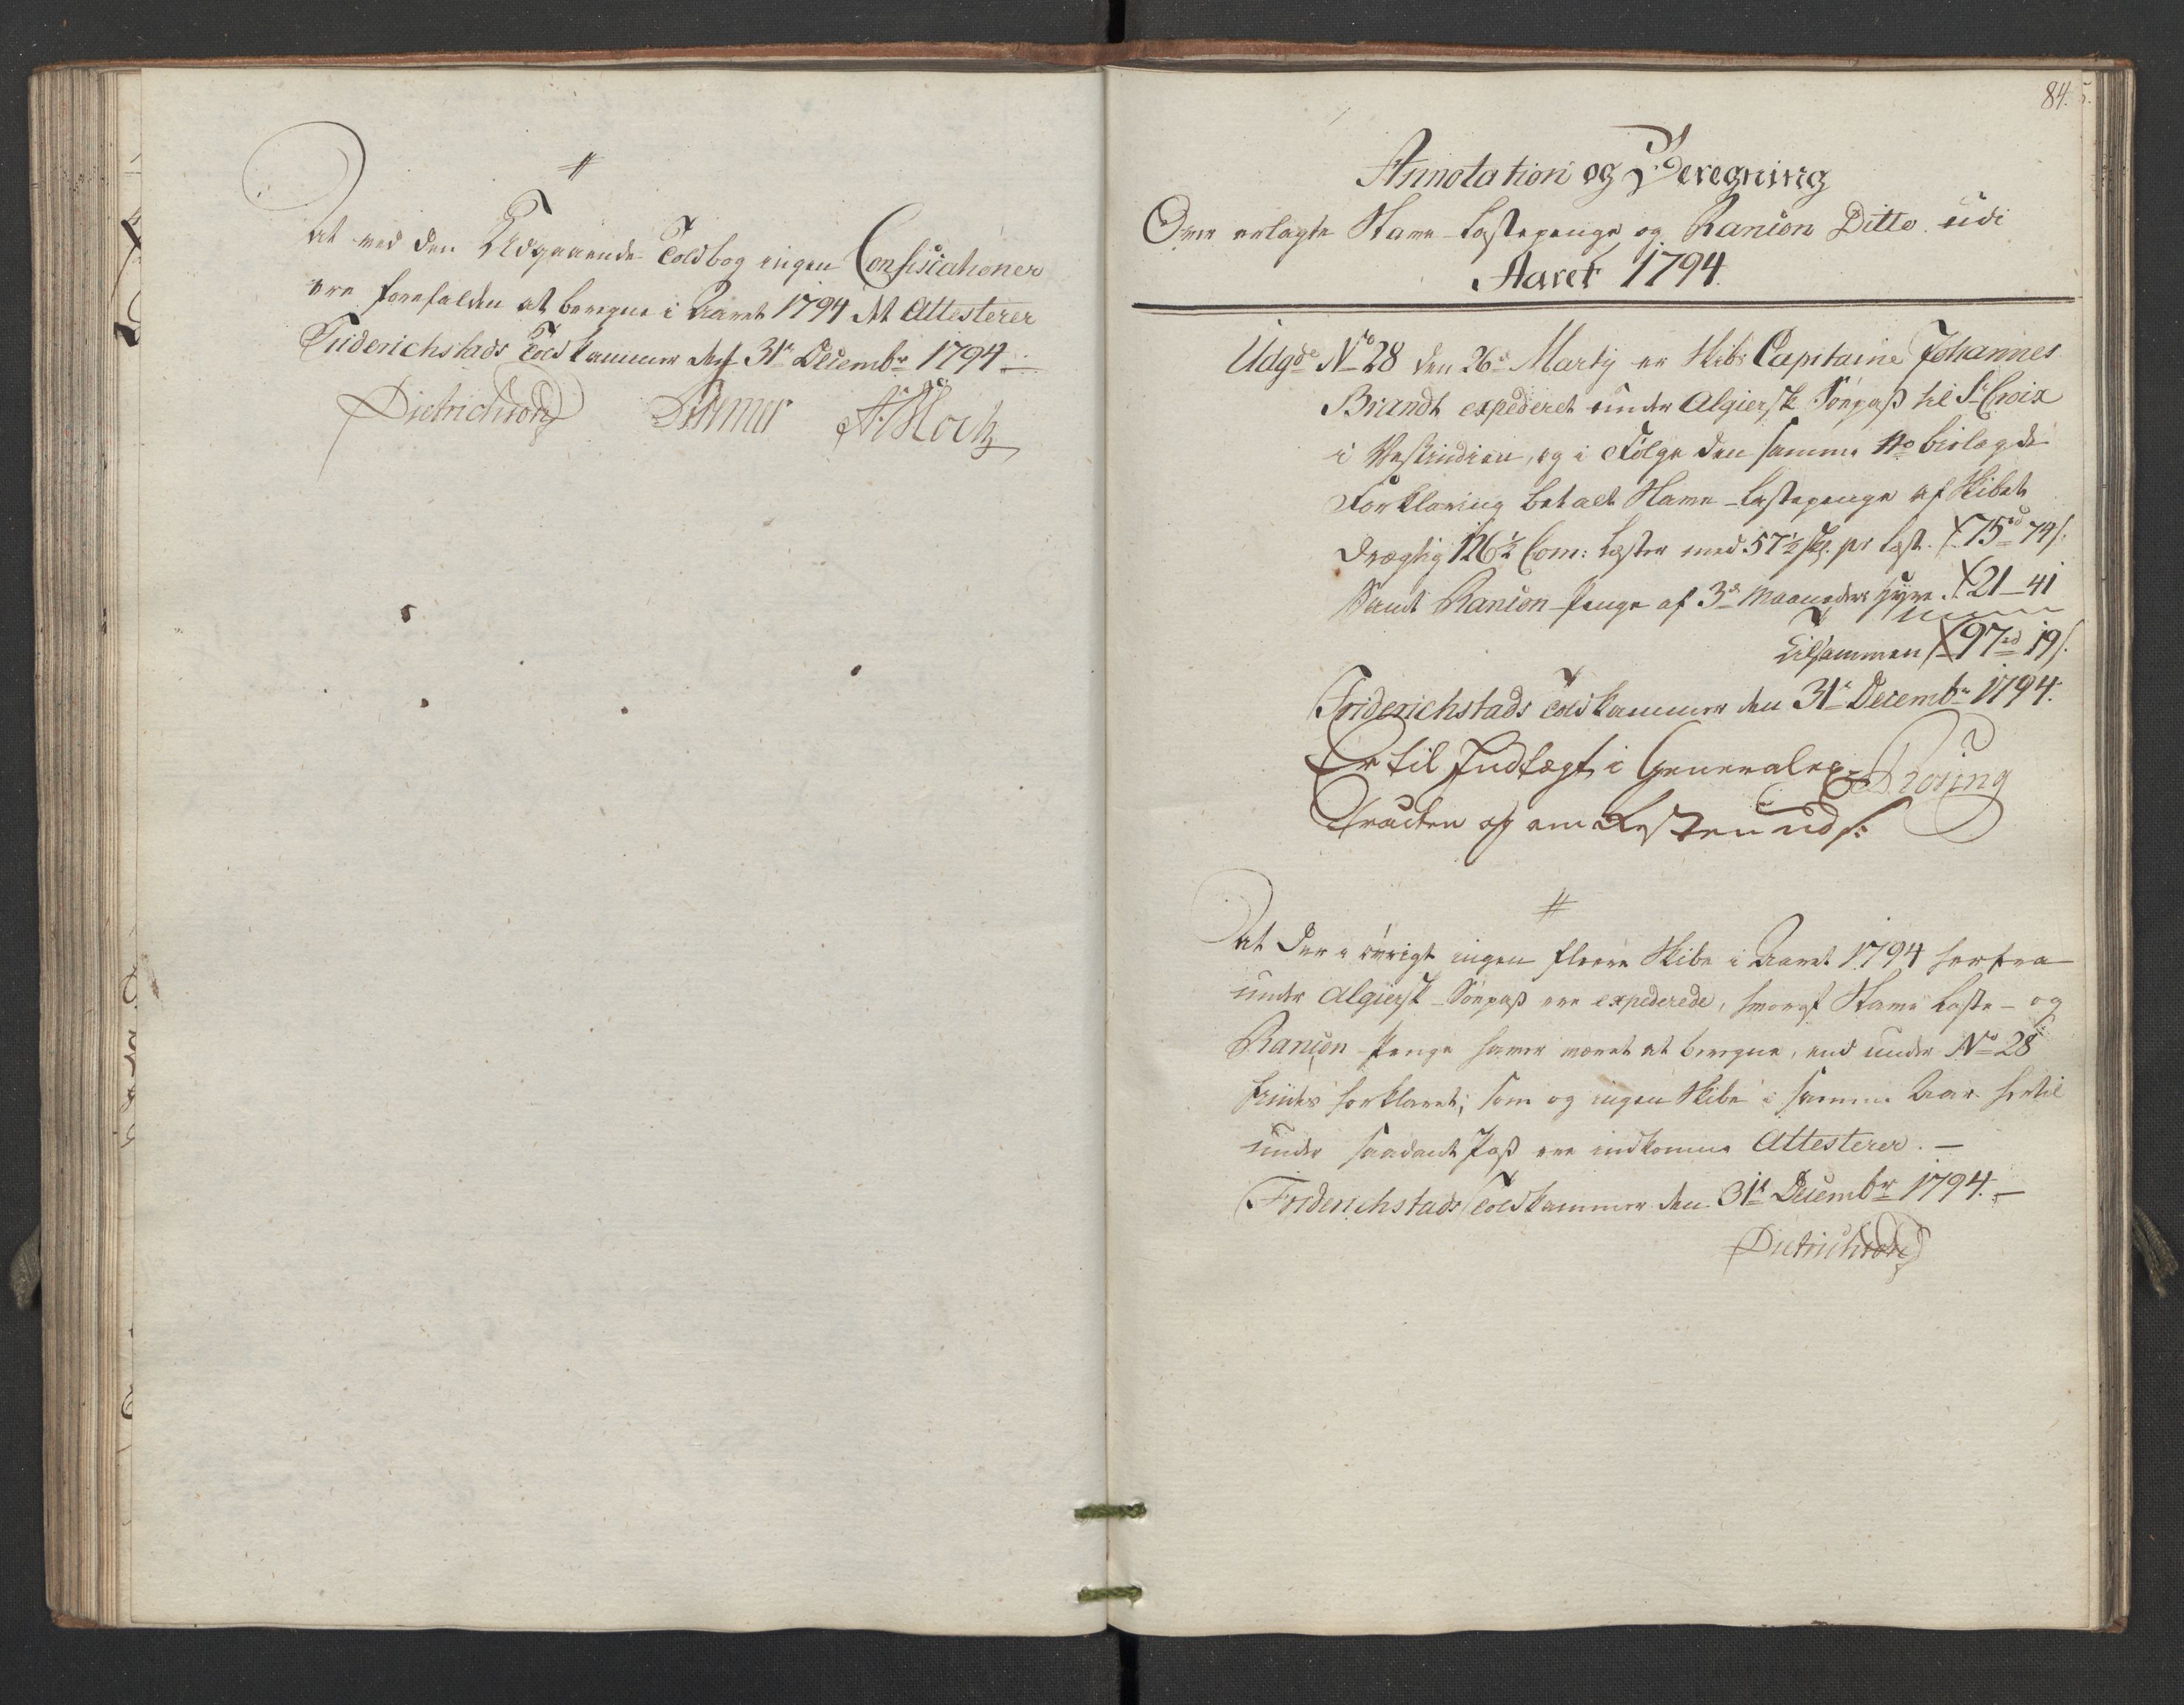 At ved den Udgaaende Toldbog ingen Confiscationer
ere forefalden at beregne i Aaret 1794 At Attesterer
Friderichstads Toldkammer den 31te Decembr 1794.
Dietrichson
84.
Annotation og Beregning
Over erlagte Slave-Lastepenge og Rancion Ditto udi
Aaret 1794.
Udgde No 28 den 26de Martij er Skibs Capitaine Johannes
Brandt expederet under Algiersk Söepass til St Croix
i Vestindien, og i Fölge den samme No bielagde
Forklaring betalt Slave-Lastepenge af Skibets
Drægtig 126½ Com: Læster med 57½ s. pr Læst. 75rd 74s.
Samt Rancion-Penge af 3de Maaneders Hyre. 21-41
Tilsammen 97rd 19s.
Friderichstads Toldkammer den 31te Decembr 1794.
Er til Indtægt i Generalex-
tracten
#
At der i övrigt ingen fleere Skibe i Aaret 1794 herfra
under Algiersk-Söepass ere expederede, hvoraf Slave Læste- og
Rancion-Penge haver været at beregne, end under No 28
findes forklaret; som og ingen Skibe i samme Aar hertil
under saadant Pass ere indkomne Attesterer.-
Friderichstads Toldkammer den 31te Decembr 1794.-
Dietrichson